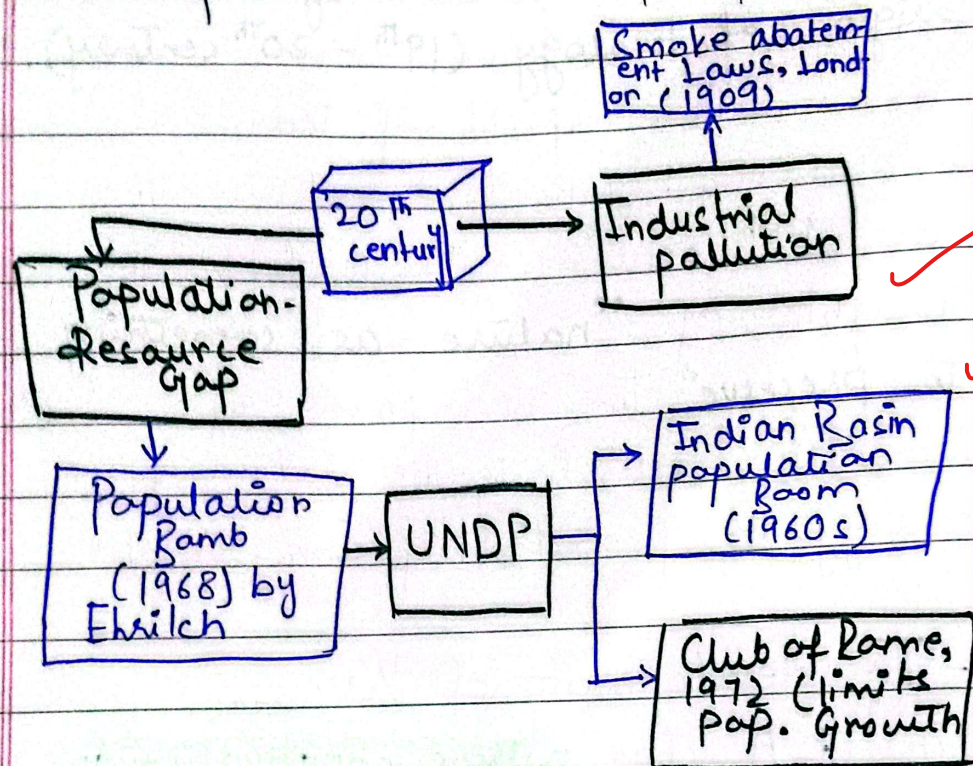 Smoke abatem-
ent Laws, Lond
on (1909)
20th
century
Industrial
pallution
Population-
Resource
Gap
Population
Bamb
(1968) by
Ehrilch
UNDP
Indian Basin
population
Boom
(1960s)
Club of Rome,
1972 (limits
pop. Growth